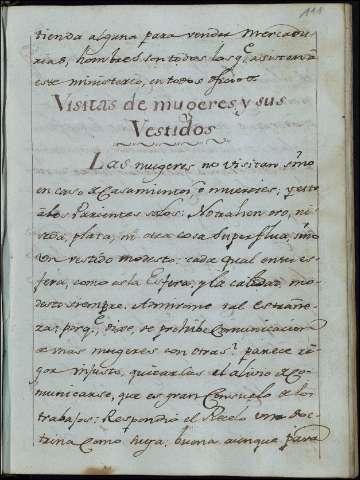 111
tienda alguna para vender Mercadu-
rias, hombres son todos los q.e asisten à
este ministerio, en todos oficios
Visitas de mugeres, y sus
Vestidos
Las mugeres no visitan sino
en caso de Casamientos, ò muertes; y esto
à los Parientes solos: No trahen oro, ni
seda, plata, ni otra cosa superflua, sino
Un vestido modesto: cada qual en su es-
fera, como es la Esfera; y la calidad, mo-
desto siempre. Admirome tal estrañe-
za; porq.e, dixe, se prohibe Comunicacion
de mas mugeres con otras? parece ri-
gor injusto, quitarlas el alivio de Co-
municarse, que es gran Consuelo de los
trabajos: Respondiò el Recelo una doc-
trina Como suya; buena aunque para